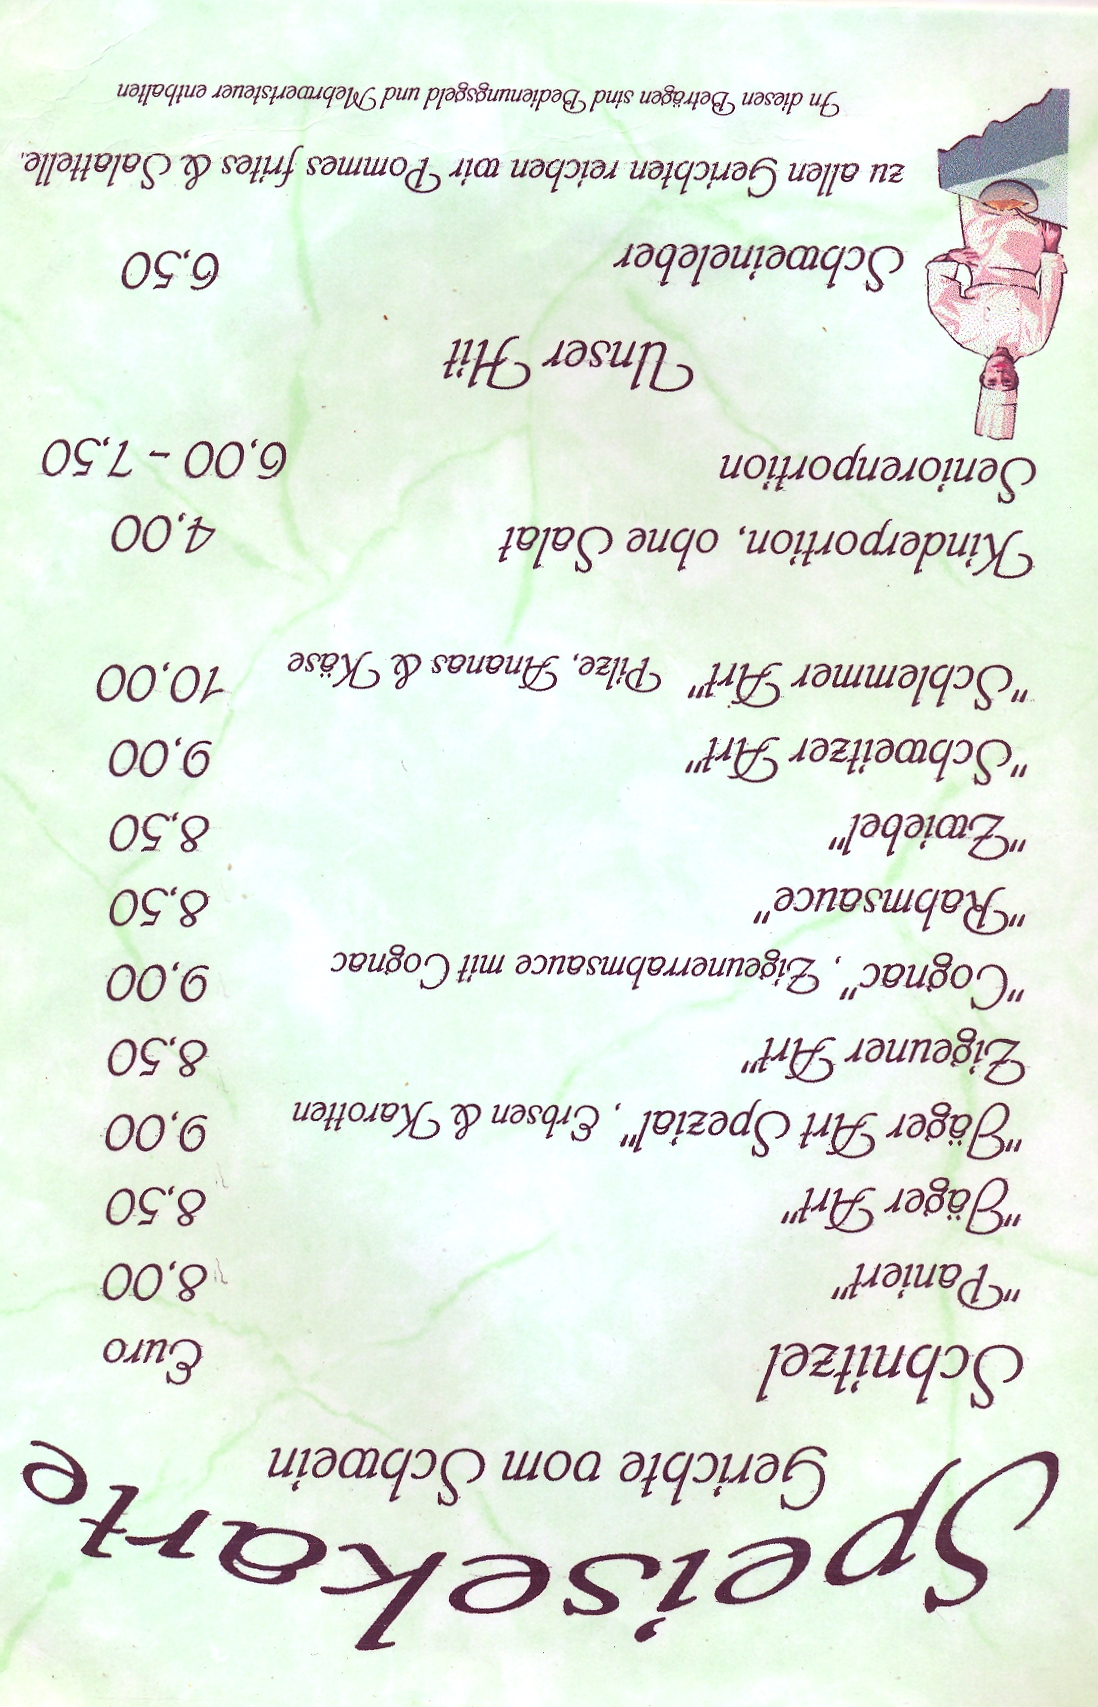 Speisekarte
Gerichte vom Schwein
Schnitzel Euro
"Paniert" 8,00
"Jäger Art" 8,50
"Jäger Art Spezial", Erbsen & Karotten 9,00
Zigeuner Art" 8,50
"Cognac", Zigeunerrahmsauce mit Cognac 9,00
"Rahmsauce" 8,50
"Zwiebel" 8,50
"Schweitzer Art" 9,00
"Schlemmer Art" Pilze, Ananas & Käse 10,00
Kinderportion, ohne Salat 4,00
Seniorenportion 6,00 - 7,50
Unser Hit
Schweineleber 6,50
zu allen Gerichten reichen wir Pommes frites & Salattelle.
In diesen Beträgen sind Bedienungsgeld und Mehrwertsteuer enthalten